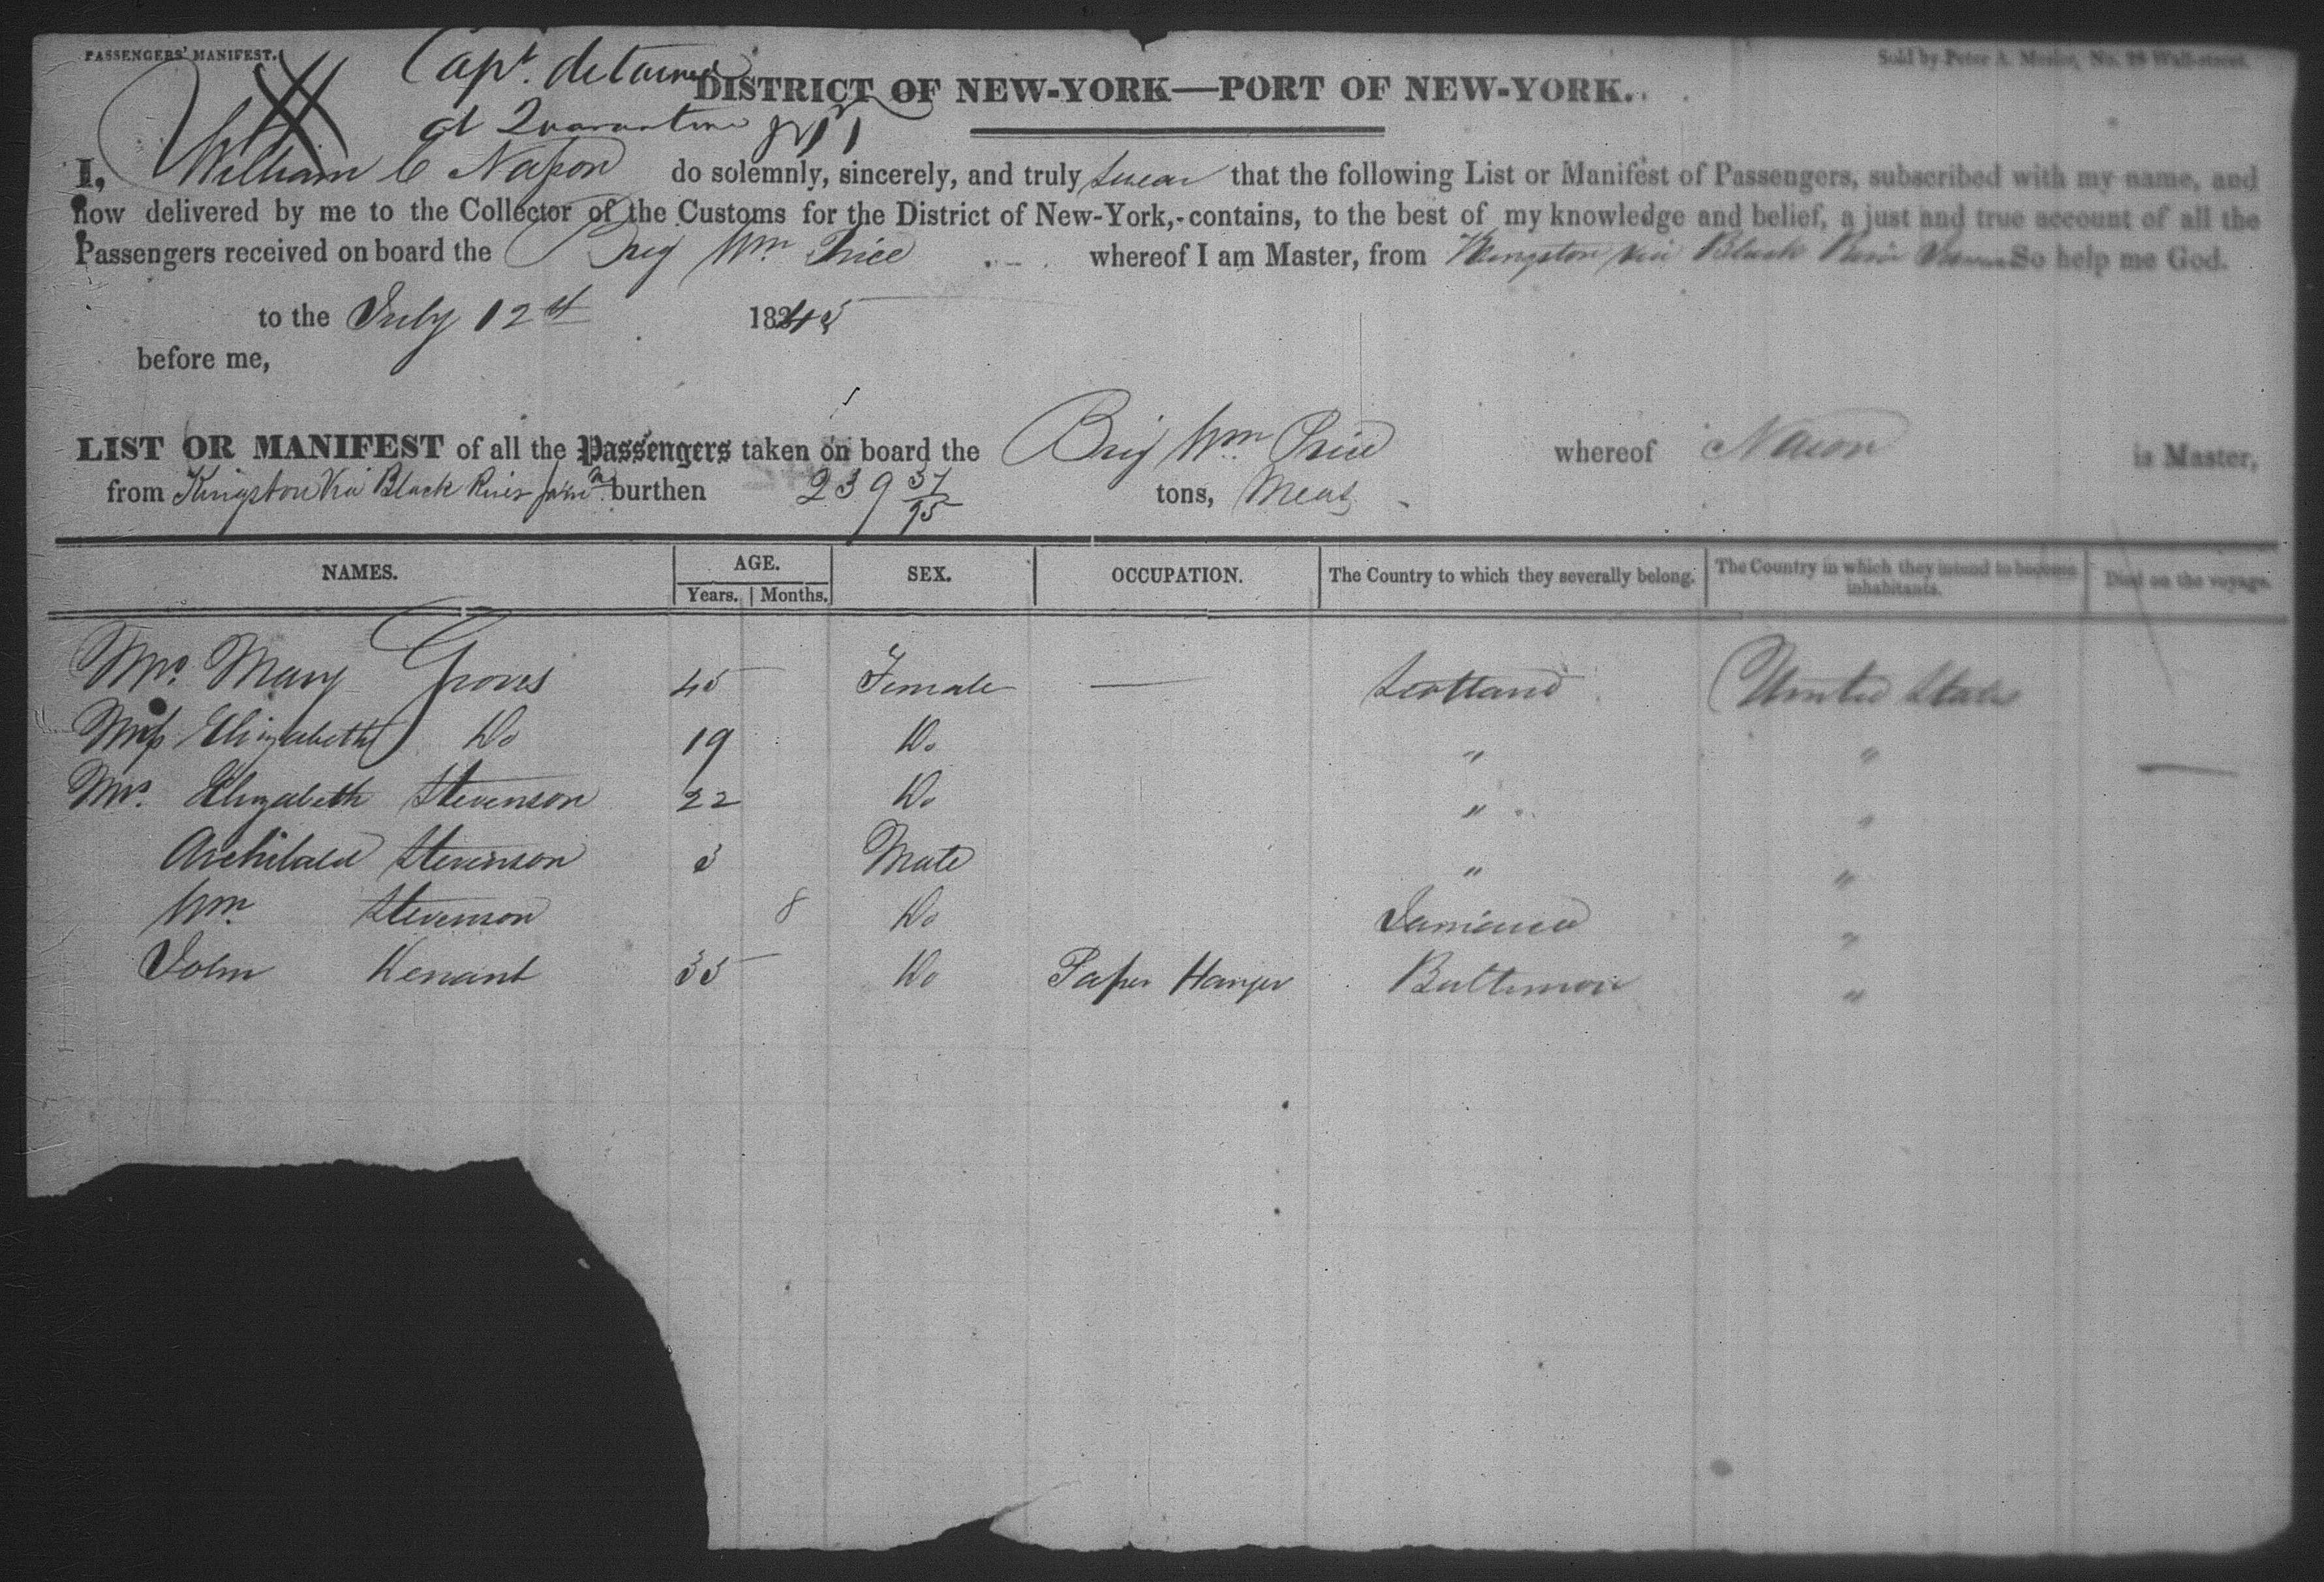 PASSENGERS' MANIFEST.
Sold by Peter A. Mesier, No. 28 Wall-street.
Capt. detained
at Quarantine
DISTRICT OF NEW-YORK—PORT OF NEW-YORK.
I, William C Nason do solemnly, sincerely, and truly swear that the following List or Manifest of Passengers, subscribed with my name, and
now delivered by me to the Collector of the Customs for the District of New-York, contains, to the best of my knowledge and belief, a just and true account of all the
Passengers received on board the Brig Wm Price whereof I am Master, from Kingston via Black River So help me God.
to the July 12th 1845
before me,
LIST OR MANIFEST of all the Passengers taken on board the Brig Wm Price whereof Nason is Master,
from Kingston Via Black River Jama burthen 239 37/95 tons,
NAMES. AGE. SEX. OCCUPATION. The Country to which they severally belong. The Country in which they intend to become inhabitants. Died on the voyage.
Years. Months.
Mrs. Mary Groves 45 Female — Scotland United States
Miss Elizabeth Do 19 Do " "
Mrs. Elizabeth Stevenson 22 Do " "
Archibald Stevenson 3 Male " "
Wm Stevenson 8 Do Jamaica "
John Kenant 35 Do Paper Hanger Baltimore "